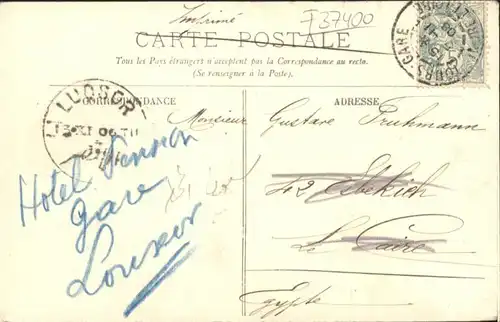 Imprimé
F37400
CARTE POSTALE
Tous les Pays étrangers n'acceptent pas la Correspondance au recto.
(Se renseigner à la Poste.)
CORRESPONDANCE
ADRESSE
LUQSOR
Monsieur
Gustave Pruhmann
Le Caire
Egypte
Hotel Pension
Gare
Louxor
GARE